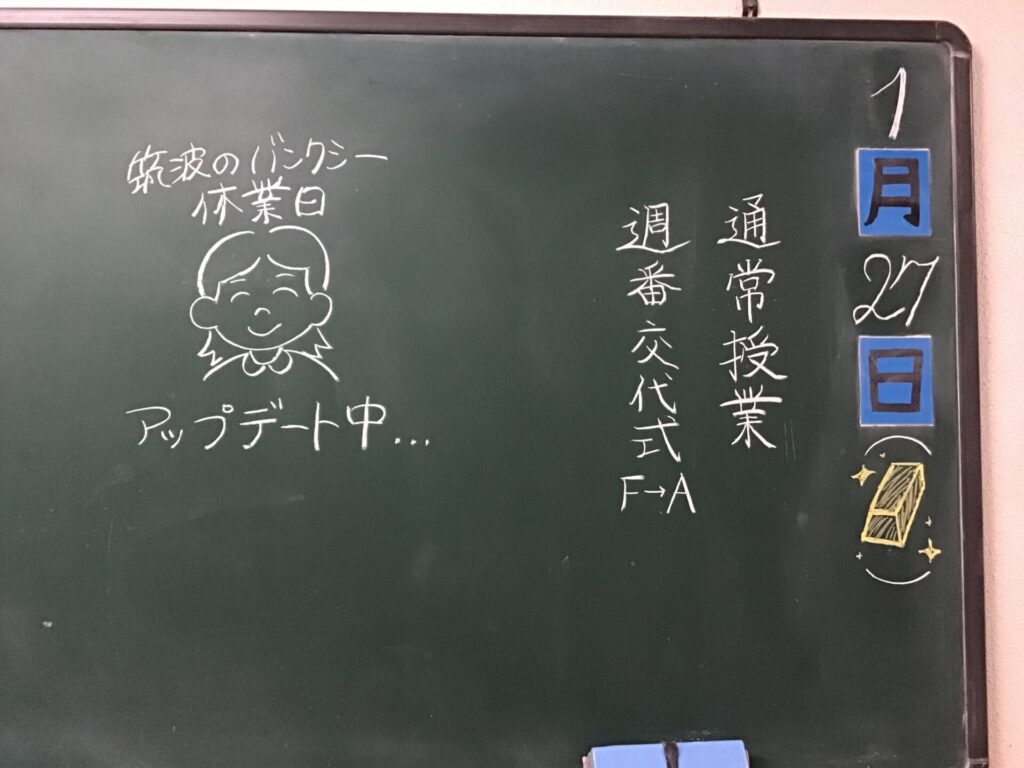 1月27日( )
通常授業
週番交代式
F→A
筑波のバンクシー
休業日
アップデート中...